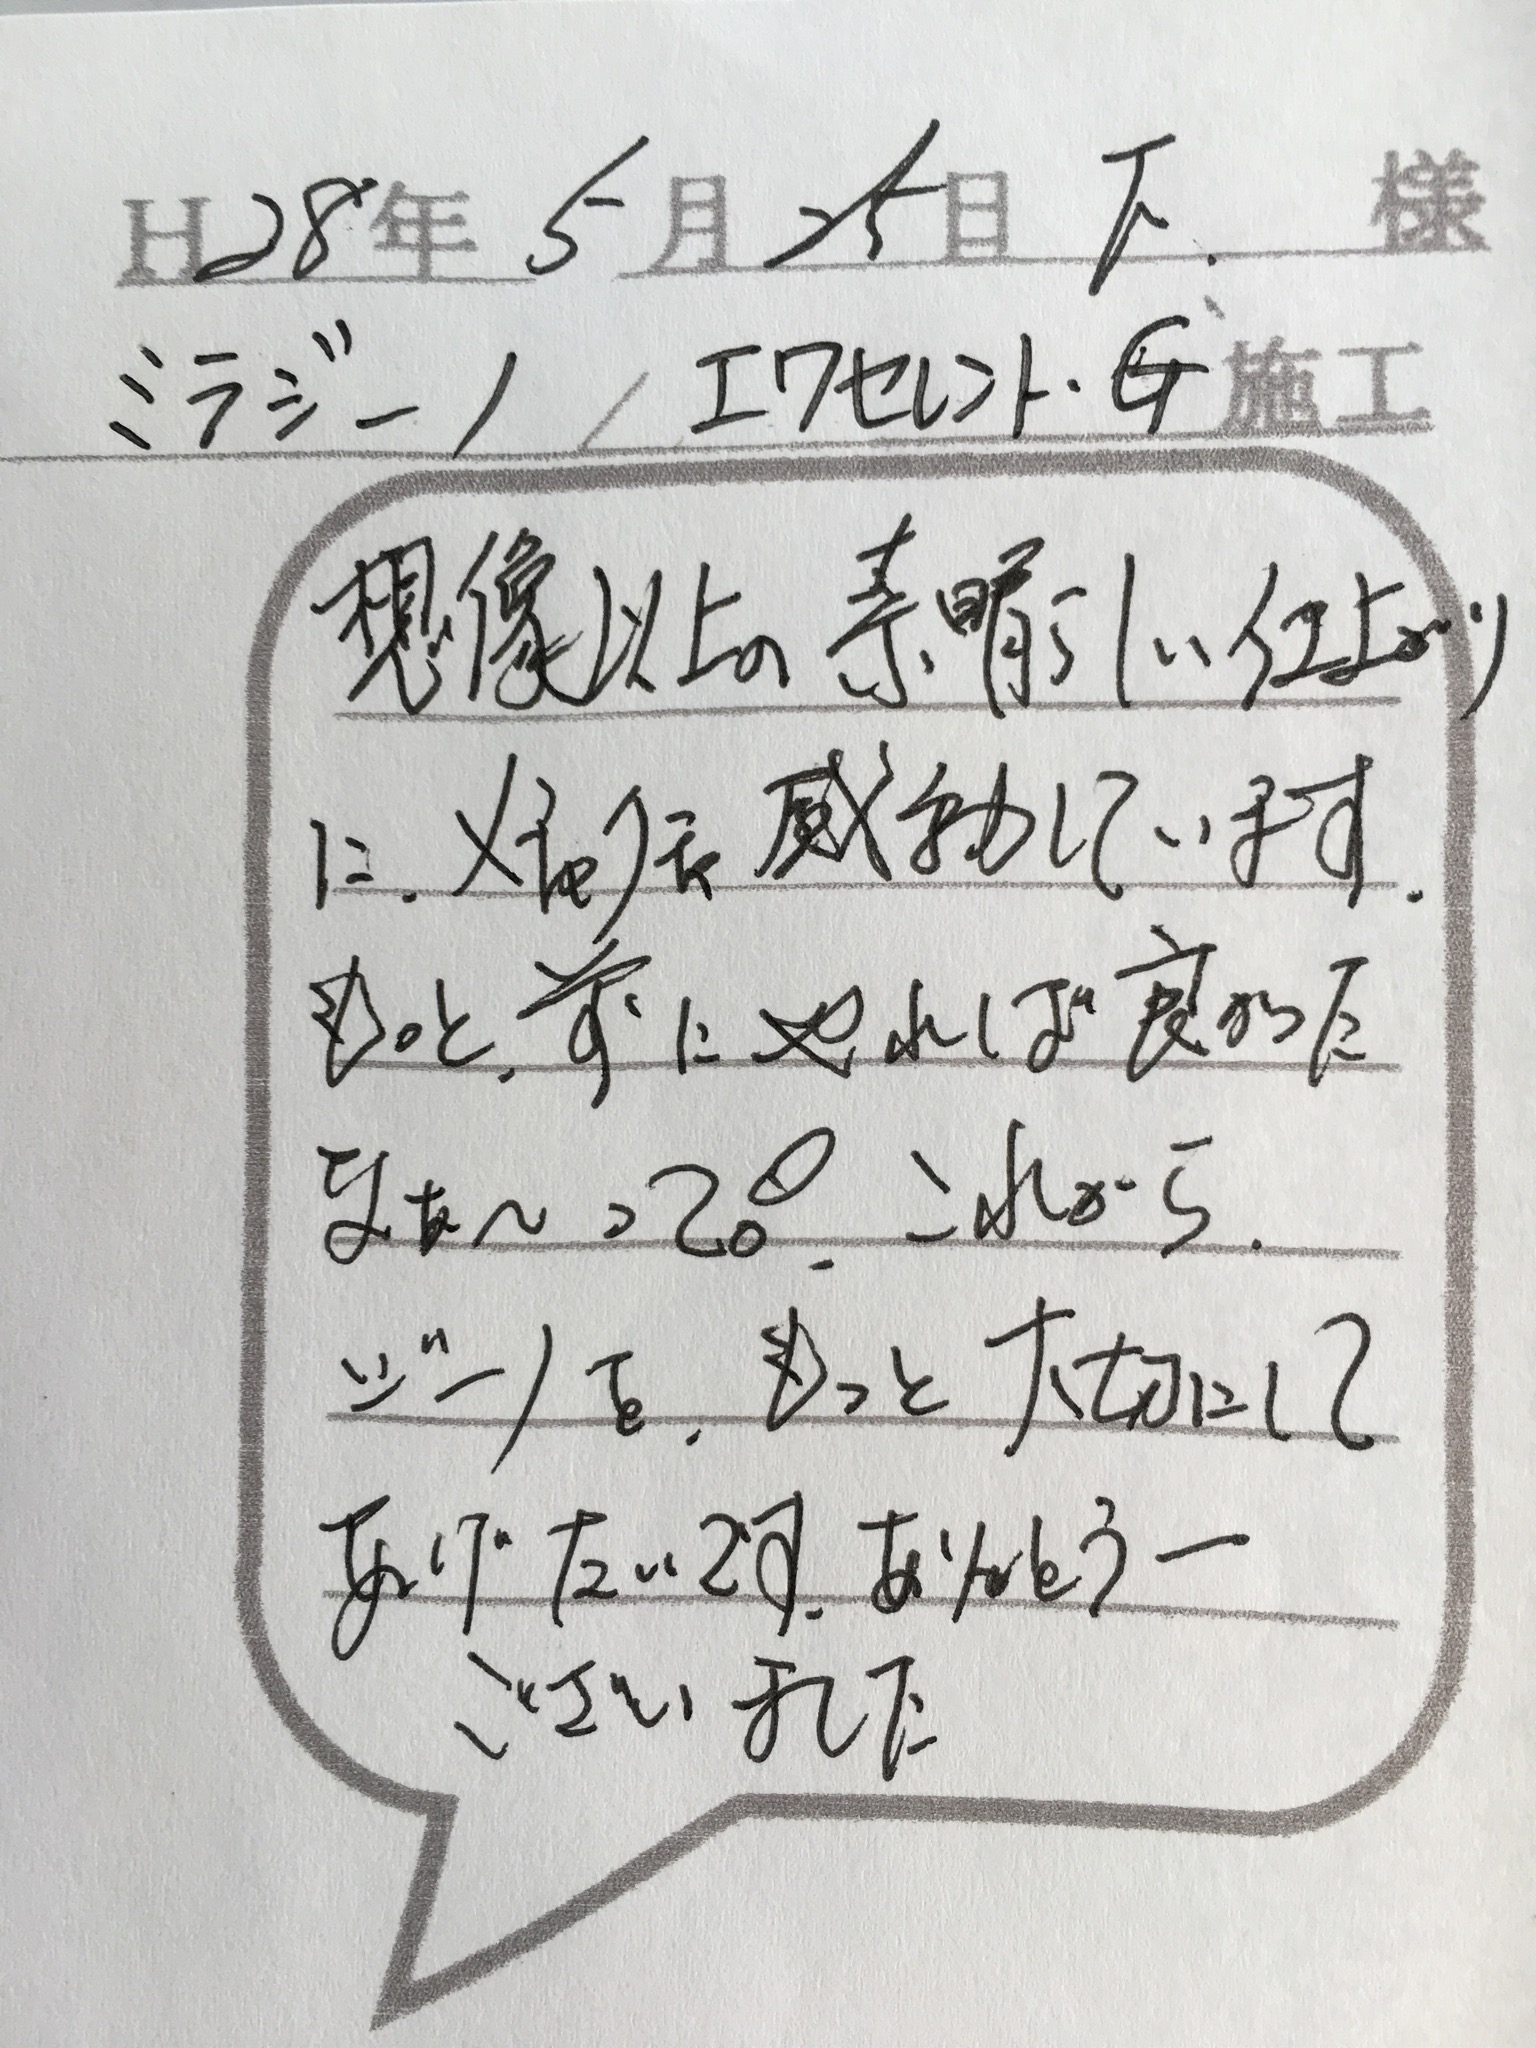 H28年 5月 25日 下. 様
ミラジーノ / エクセレント・G 施工
想像以上の素晴らしい仕上がり
に、メチャクチャ感動しています.
もっと、前にやれば良かった
なぁ～って. これから.
ジーノを、もっと大切にして
あげたいです. ありがとうー
ございました